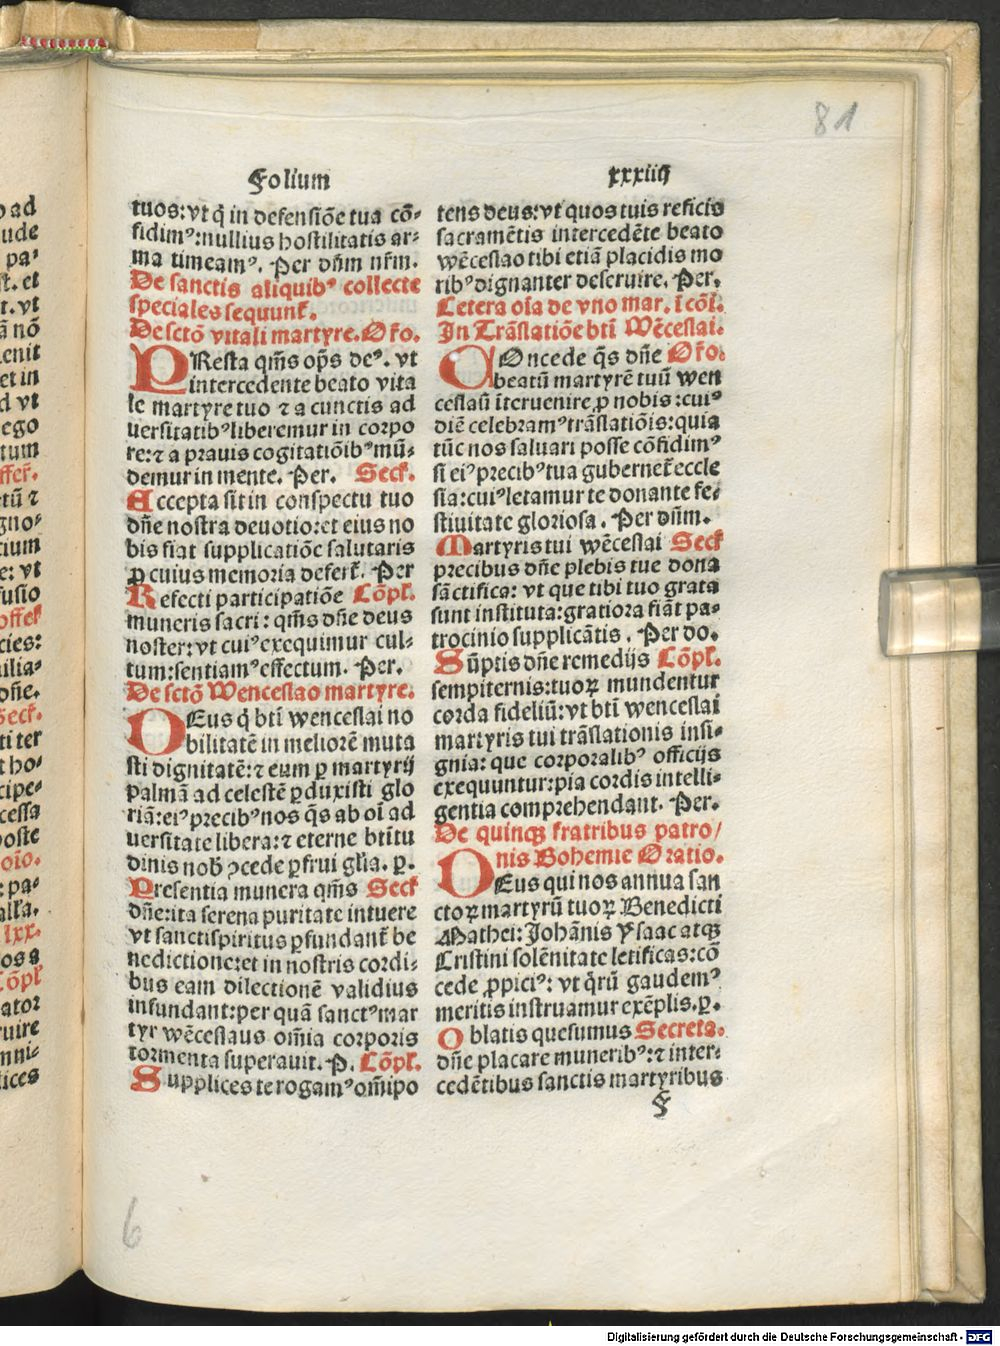 81
Folium xxxiiij
tuos: vt q̇ in defensiōe tua cō-
fidimꝰ: nullius hostilitatis ar-
ma timeamꝰ. Per dn̄m nr̄m.
De sanctis aliquibꝰ collecte
speciales sequunt̃.
De sctō vitali martyre. Or̄o.
PResta qm̄s op̄s deꝰ. vt
intercedente beato vita
le martyre tuo ⁊ a cunctis ad
uersitatibꝰ liberemur in corpo
re: ⁊ a prauis cogitatiōibꝰ mū-
demur in mente. Per. Secr̄.
Accepta sit in conspectu tuo
dn̄e nostra deuotio: et eius no
bis fiat supplicatiōe salutaris
ꝓ cuius memoria defert̃. Per
Refecti participatiōe Cōpl̄.
muneris sacri: qm̄s dn̄e deus
noster: vt cuiꝰ exequimur cul-
tum: sentiamꝰ effectum. Per.
De sctō Wenceslao martyre.
DEus q̇ bt̄i wenceslai no
bilitatē in meliorē muta
sti dignitatē: ⁊ eum ꝑ martyrij
palmā ad celestē ꝑduxisti glo
riā: eiꝰ precibꝰ nos q̄s ab oī ad
uersitate libera: ⁊ eterne bt̄itu
dinis nob̄ ꝯcede ꝑfrui gl̄ia. ꝑ.
Presentia munera qm̄s Secr̄
dn̄e: ita serena puritate intuere
vt sanctispiritus ꝑfundant̃ be
nedictione: et in nostris cordi-
bus eam dilectionē validius
infundant: per quā sanctꝰ mar
tyr wēceslaus om̄ia corporis
tormenta superauit. P. Cōpl̄.
Supplices te rogamꝰ om̄ipo
tens deus: vt quos tuis reficis
sacramētis intercedēte beato
wēceslao tibi etiā placidis mo
ribꝰ dignanter deseruire. Per.
Cetera oīa de vno mar. ī cōi.
In Trāslatiōe bt̄i Wēceslai.
COncede q̄s dn̄e Or̄o.
beatū martyrē tuū wen
ceslaū īteruenire ꝓ nobis: cuiꝰ
diē celebramꝰ trāslatiōis: quia
tūc nos saluari posse cōfidimꝰ
si eiꝰ precibꝰ tua gubernet̃ eccle
sia: cuiꝰ letamur te donante fe-
stiuitate gloriosa. Per dn̄m.
Martyris tui wēceslai Secr̄
precibus dn̄e plebis tue dona
sāctifica: vt que tibi tuo grata
sunt instituta: gratiora fiāt pa-
trocinio supplicātis. Per do.
Sūptis dn̄e remedijs Cōpl̄.
sempiternis: tuoꝝ mundentur
corda fideliū: vt bt̄i wenceslai
martyris tui trāslationis insi-
gnia: que corporalibꝰ officijs
exequuntur: pia cordis intelli-
gentia comprehendant. Per.
De quinqꝫ fratribus patro/
nis Bohemie Oratio.
DEus qui nos annua san
ctoꝝ martyrū tuoꝝ Benedicti
Mathei: Johānis Ysaac atqꝫ
Cristini solēnitate letificas: cō
cede ꝓpiciꝰ: vt q̄rū gaudemꝰ
meritis instruamur exēplis. ꝑ.
Oblatis quesumus Secreta.
dn̄e placare muneribꝰ: ⁊ inter-
cedētibus sanctis martyribus
F
6
Digitalisierung gefördert durch die Deutsche Forschungsgemeinschaft - DFG